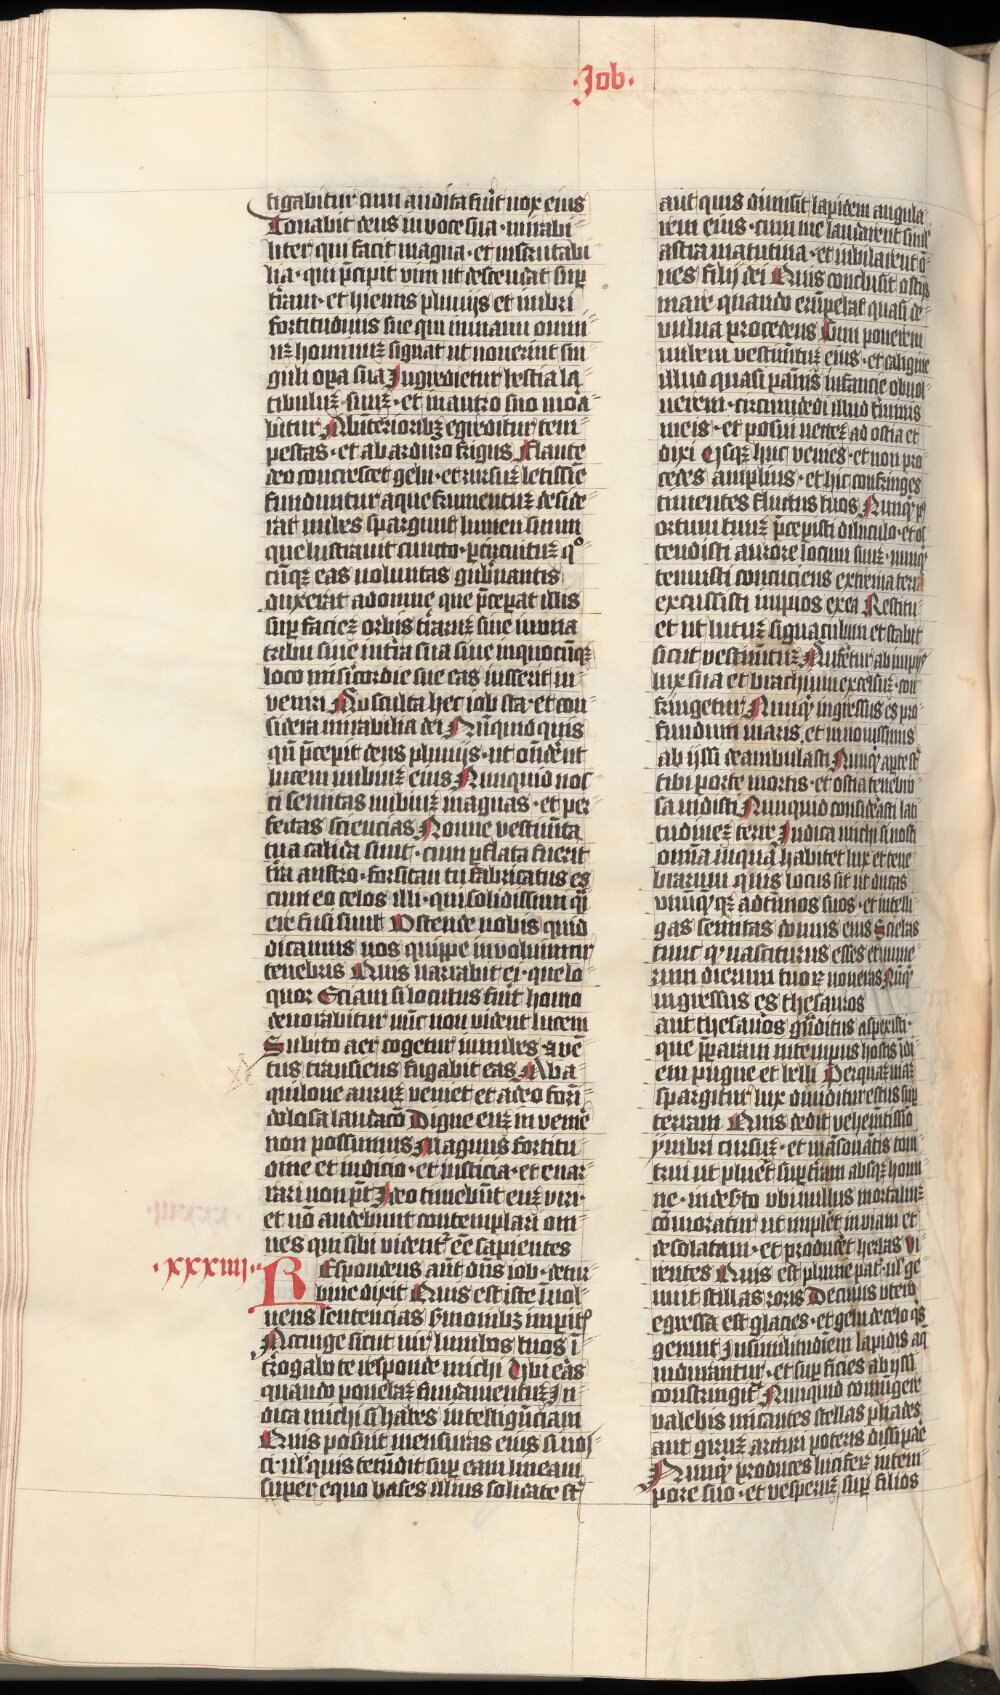 ·Job·
tigabitur cum audita fu̅it uox eius
Tonabit deus in uoce sua · mirabi
liter qui facit magna · et inscrutabi
lia · qui p̅cipit niui ut descendat sup̅
tr̅am · et hiemis pluuijs et imbri
fortitudinis sue qui in manu omni
uꝫ hominuꝫ signat ut nouerint sin
guli opa̅ sua Ingredietur bestia la
tibuluꝫ suuꝫ · et in antro suo mora
bitur Ab interioribꝫ egredit̅ur tem
pestas · et ab arduro frigus Flante
deo concrescet gelu · et rursuꝫ letissi̅e
funduntur aque frumentuꝫ deside
rat nubes spargunt lumen suum
que lustrant cuncta · p̅ circuituꝫ qº
cu̅qꝫ eas uoluntas gub̅nantis
duxerit ad omne que p̅cep̅at illis
sup̅ facieꝫ orbis tr̅aruꝫ siue in una
tribu siue in tr̅a sua siue in quocu̅qꝫ
loco mis̅icordie sue eas iusserit in
veniri Ausculta hec iob sta · et con
sidera mirabilia dei Nu̅quid quis
qn̅ p̅cepit deus pluuijs · ut on̅dere̅t
lucem nubiuꝫ eius Nunquid nos
ti semitas nubiuꝫ magnas · et per
fectas sciencias Nonne vestime̅ta
tua calida sunt · cum p̅flata fuerit
tr̅a austro · forsitan tu fabricatus es
cum eo celos illi · qui solidissimi q̅i
ere fusi sunt Ostende nobis quid
dicamus nos quippe inuoluimur
tenebris Quis narrabit ei · que lo
quor Eciam si locutus fu̅it homo
deuorabitur nu̅c non vident lucem
Subito aer cogetur in nubes · ⁊ ve̅
tus transiens fugabit eas Ab a
quilone auruꝫ veniet et a deo formi
dolosa laudaco̅ Digne euꝫ inueni̅e
non possumus Magnus fortitu
dine et iudicio · et iusticia · et enar
rari non po̅t Ideo timebu̅t euꝫ viri ·
et no̅ audebunt contemplari om
nes qui sibi vident̅ e̅e sapientes
·xxxviij·
REspondens aut dn̅s iob · de tur
bine dixit Quis est iste inuol
uens sentencias s̅monibꝫ imp̅itis
Accinge sicut uir lumbos tuos i̅
t̅rogabo te responde michi Vbi e̅as
quando poneba̅ fundamentuꝫ In
dica michi si habes intelligenciam
Quis posuit mensuras eius si nos
ti · ul̅ quis tetendit sup̅ eam lineam
super equo bases illius solidate st̅
aut quis dimisit lapidem angula
rem eius · cum me laudarent simul
astra matutina · et iubilarent o̅
nes filij dei Quis conclusit ostijs
mare quando eru̅pebat quasi de
uulua procedens Cum ponerem
nubem vestime̅tuꝫ eius · et caligine
illud quasi pannis infancie obuol
uerem · circumdedi illud t̅minis
meis · et posui uecteꝫ ad ostia et
dixi Vsqꝫ huc venies · et non pro
cedes amplius · et hic confringes
tumentes fluctus tuos Nunq̅ p̅
ortum tuuꝫ p̅cepisti diluculo · et os
tendisti aurore locum suuꝫ · nunq̅
tenuisti concuciens extrema terre
excussisti impios ex ea Restitu
et ut lutuꝫ signaculum et stabit
sicut vestime̅tuꝫ Aufe̅tur ab impijs
lux sua et brachium excelsuꝫ · con
fringetur Nunq̅ ingressus es pro
fundum maris et in nouissimis
abyssi deambulasti Nunq̅ ap̅te st̅
tibi porte mortis · et ostia tenebro
sa uidisti Nunquid consid̅asti lati
tudineꝫ terre Indica michi si nosti
omnia in qua habitet lux et tene
brarum quis locus sit ut ducas
vnu̅qꝫ ad t̅minos suos · et intelli
gas semitas domus eius Sciebas
tunc q̅ nasciturus esses et nume
rum dierum tuoꝝ noueras Nu̅q̅
ingressus es thesauros
aut thesauros gra̅dinis aspexisti ·
que p̅paraui in tempus hostis i̅di
em pugne et belli Per qua̅ uia̅
spargitur lux diuiditur estus sup̅
terram Quis dedit vehement̅issimo
ymbri cursuꝫ · et uia̅ sonantis toni
trui ut plueret sup̅ tr̅am absqꝫ homi
ne · in de̅sto vbi nullus mortaliuꝫ
co̅moratur ut impleret inuiam et
desolatam · et produce̅t herbas vi
rentes Quis est pluuie pater · ul̅ ge
nuit stillas roris De cuius utero
egressa est glacies · et gelu de celo q̅s
genuit In similitudinem lapidis aq̅
indurantur · et sup̅ficies abyssi
constringit̅ Nunquid coniungere
valebis micantes stellas pliades
aut giruꝫ arcturi poteris dissipare
Nunq̅ produces luciferꝫ in tem
pore suo · et vesperuꝫ sup̅ filios